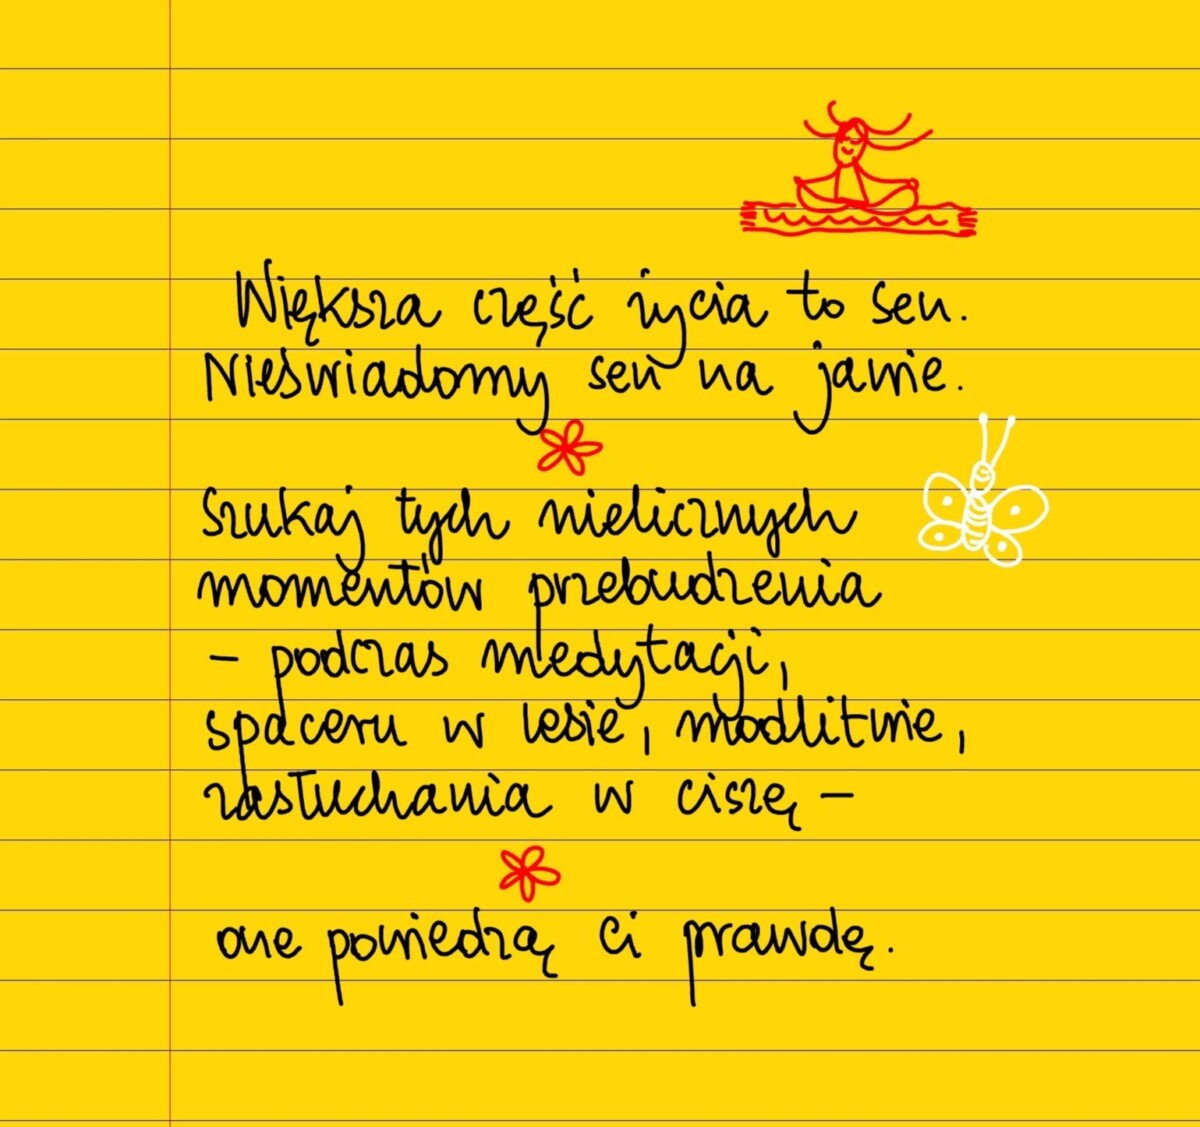 Większa część życia to sen.
Nieświadomy sen na jawie.
Szukaj tych nielicznych
momentów przebudzenia
– podczas medytacji,
spaceru w lesie, modlitwie,
zasłuchania w ciszę –
one powiedzą Ci prawdę.